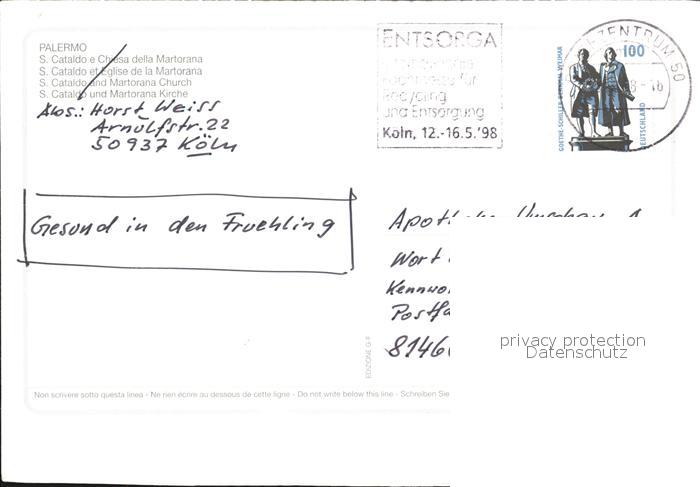 PALERMO
S. Cataldo e Chiesa della Martorana
S. Cataldo et Eglise de la Martorana
S. Cataldo and Martorana Church
S. Cataldo und Martorana Kirche
Abs.: Horst Weiss
Arnulfstr. 22
50937 Köln
Gesund in den Fruehling
ENTSORGA
Recycling
und Entsorgung
Köln, 12.-16.5.'98
ZENTRUM 50
100
GOETHE-SCHILLER-DENKMAL WEIMAR
DEUTSCHLAND
Wort
Postfa
8146
privacy protection
Datenschutz
EDIZIONE G.P.
Non scrivere sotto questa linea - Ne rien écrire au dessous de cette ligne - Do not write below this line - Schreiben Sie